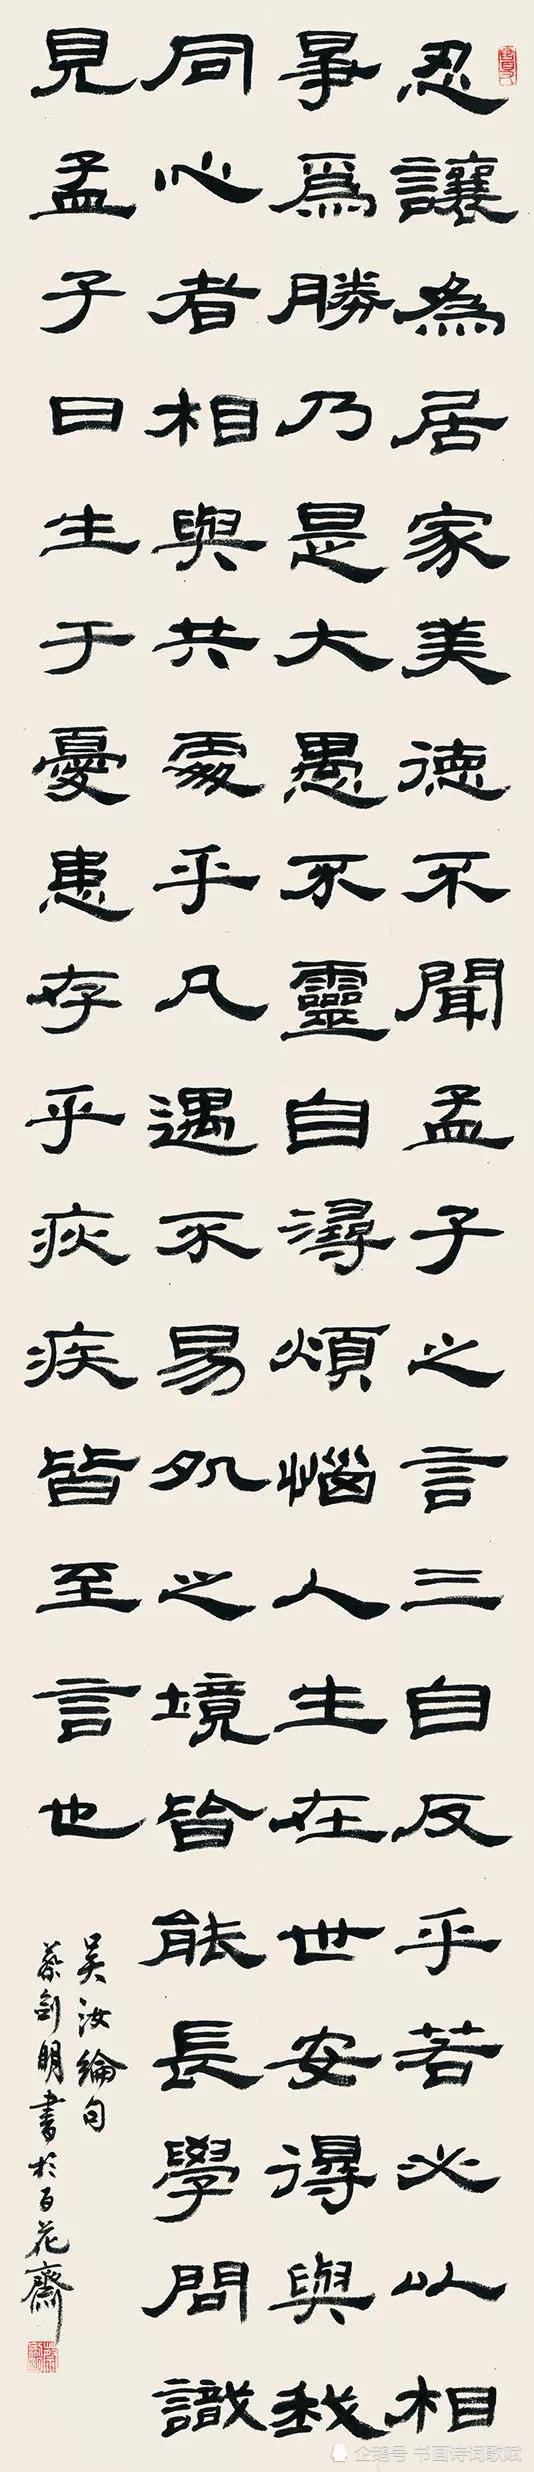 忍讓為居家美德不聞孟子之言三自反乎若必以相
爭爲勝乃是大愚不靈自潯煩惱人生在世安得與我
同心者相與共處乎凡遇不易処之境皆能長學問識
見孟子曰生于憂患存乎疢疾皆至言也
吳汝綸句
蔡劍明書於百花齋
企鹅号 书画诗词歌赋